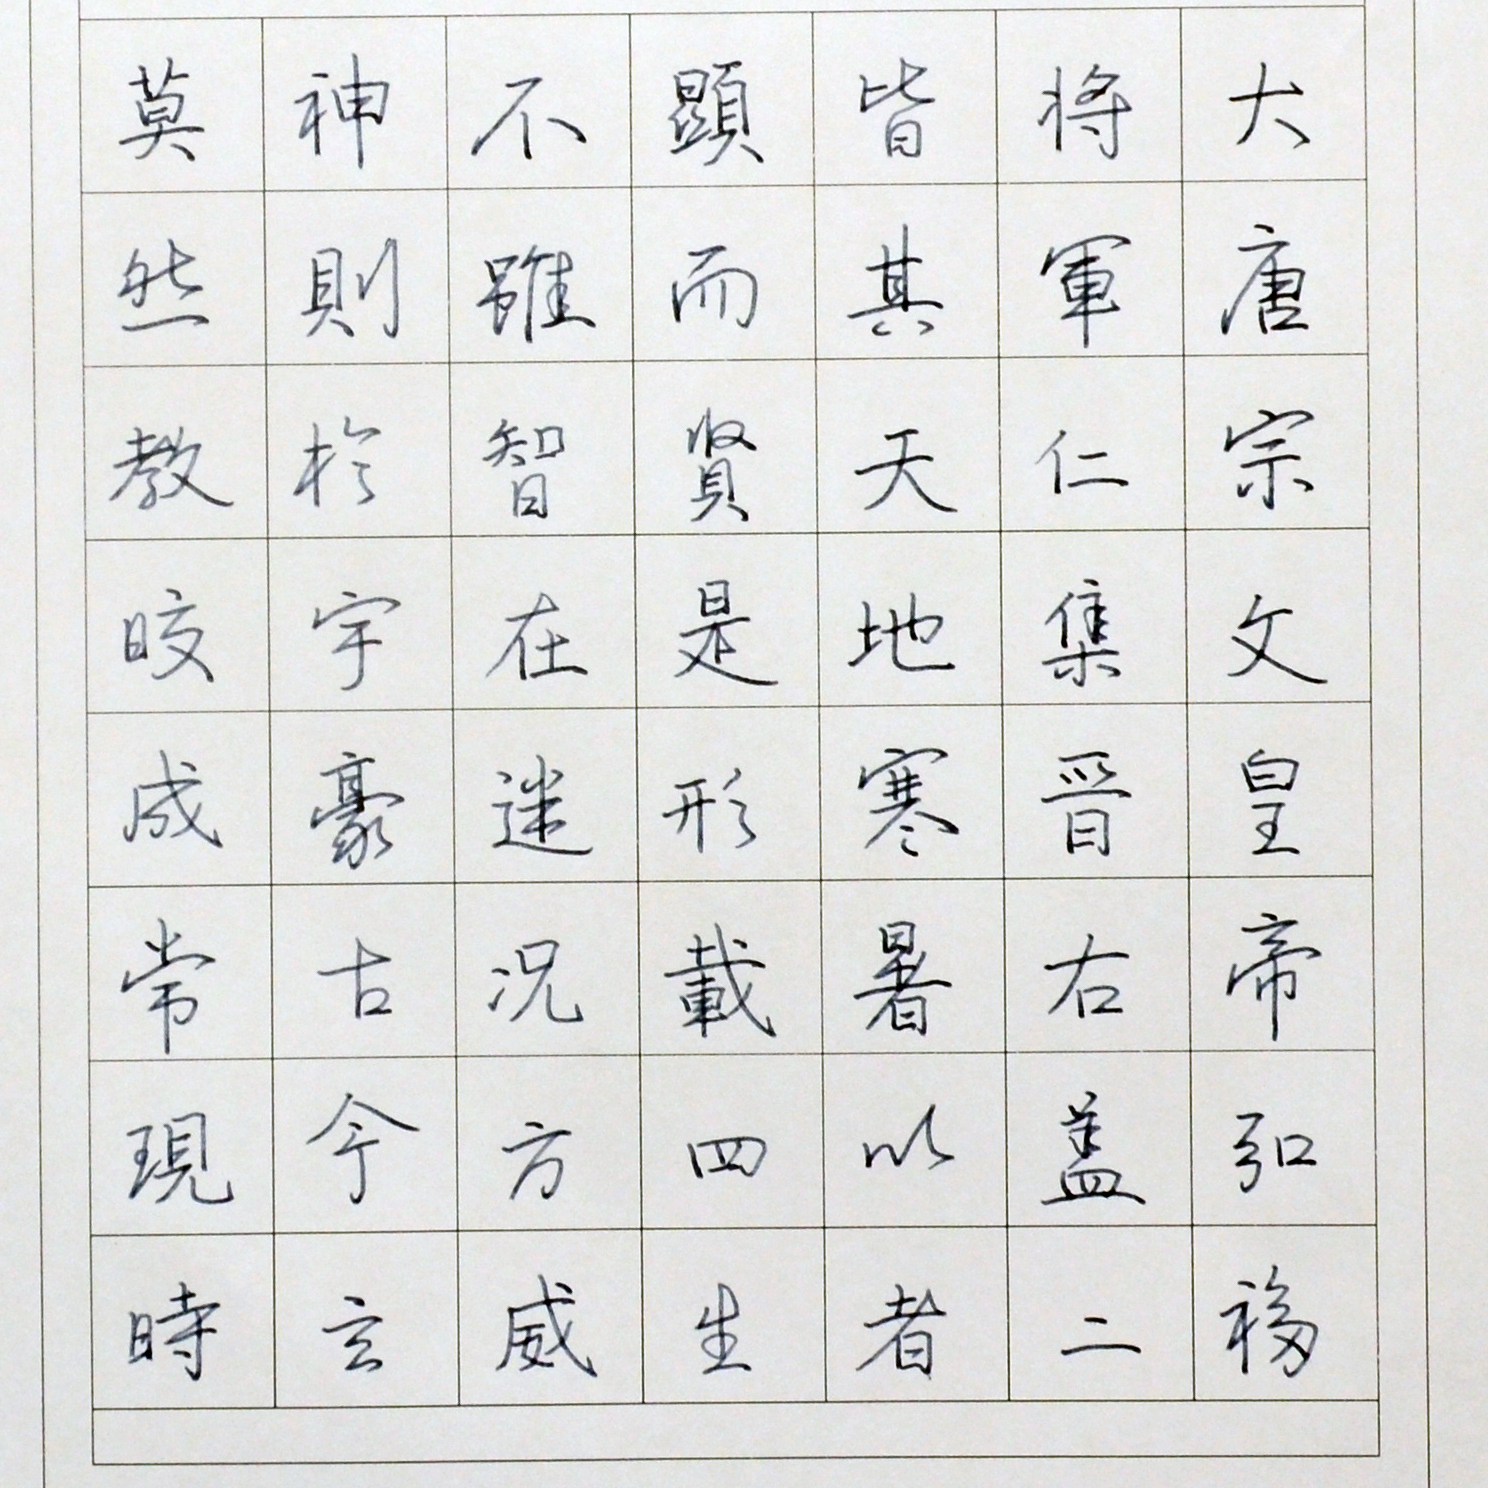 大唐宗文皇帝弘福
将軍仁集晉右盖二
皆其天地寒暑以者
顕而賢是形載四生
不雖智在迷况方威
神則於宇豪古今玄
莫然教晈成常現時